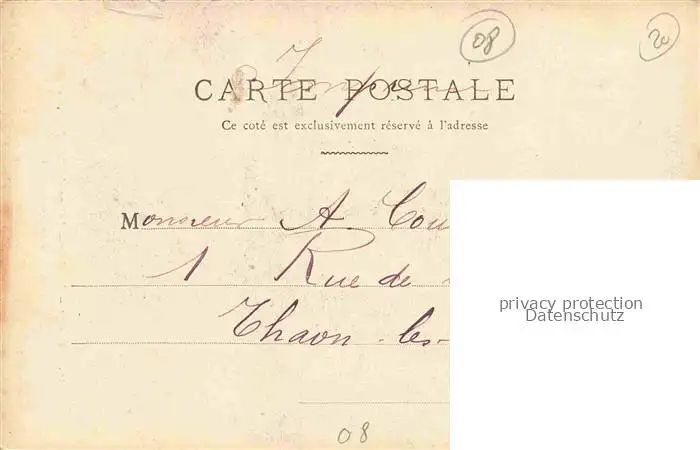 08
20
CARTE POSTALE
Ce coté est exclusivement réservé à l'adresse
Monsieur A. Cou
1 Rue de
Thaon-les-
privacy protection
Datenschutz
08